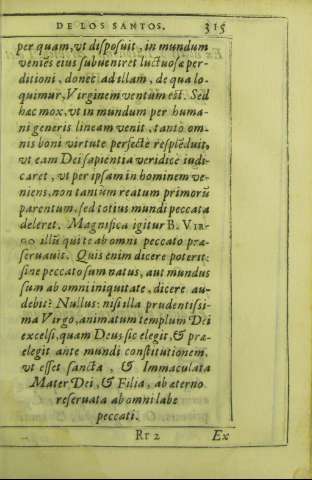 DE LOS SANTOS. 315
per quam, vt disposuit, in mundum
veniẽs eius subueniret luctuosæ per-
ditioni, donec ad illam, de qua lo-
quimur, Virginem ventum est. Sed
hac mox, vt in mundum per huma-
ni generis lineam venit, tanto om-
nis boni virtute perfecte resplẽduit,
vt eam Dei sapientia veridice iudi-
caret, vt per ipsam in hominem ve-
niens, non tantùm reatum primorũ
parentum, sed totius mundi peccata
deleret. Magnifica igitur B. VIR-
GO illũ qui te ab omni peccato præ-
seruauit. Quis enim dicere poterit:
sine peccato sum natus, aut mundus
sum ab omni iniquitate, dicere au-
debit? Nullus: nisi illa prudentissi-
ma Virgo, animatum templum Dei
excelsi, quam Deus sic elegit, & præ-
elegit ante mundi constitutionem,
vt esset sancta, & Immaculata
Mater Dei, & Filia, ab æterno
reseruata ab omni labe
peccati.
Rr 2 Ex